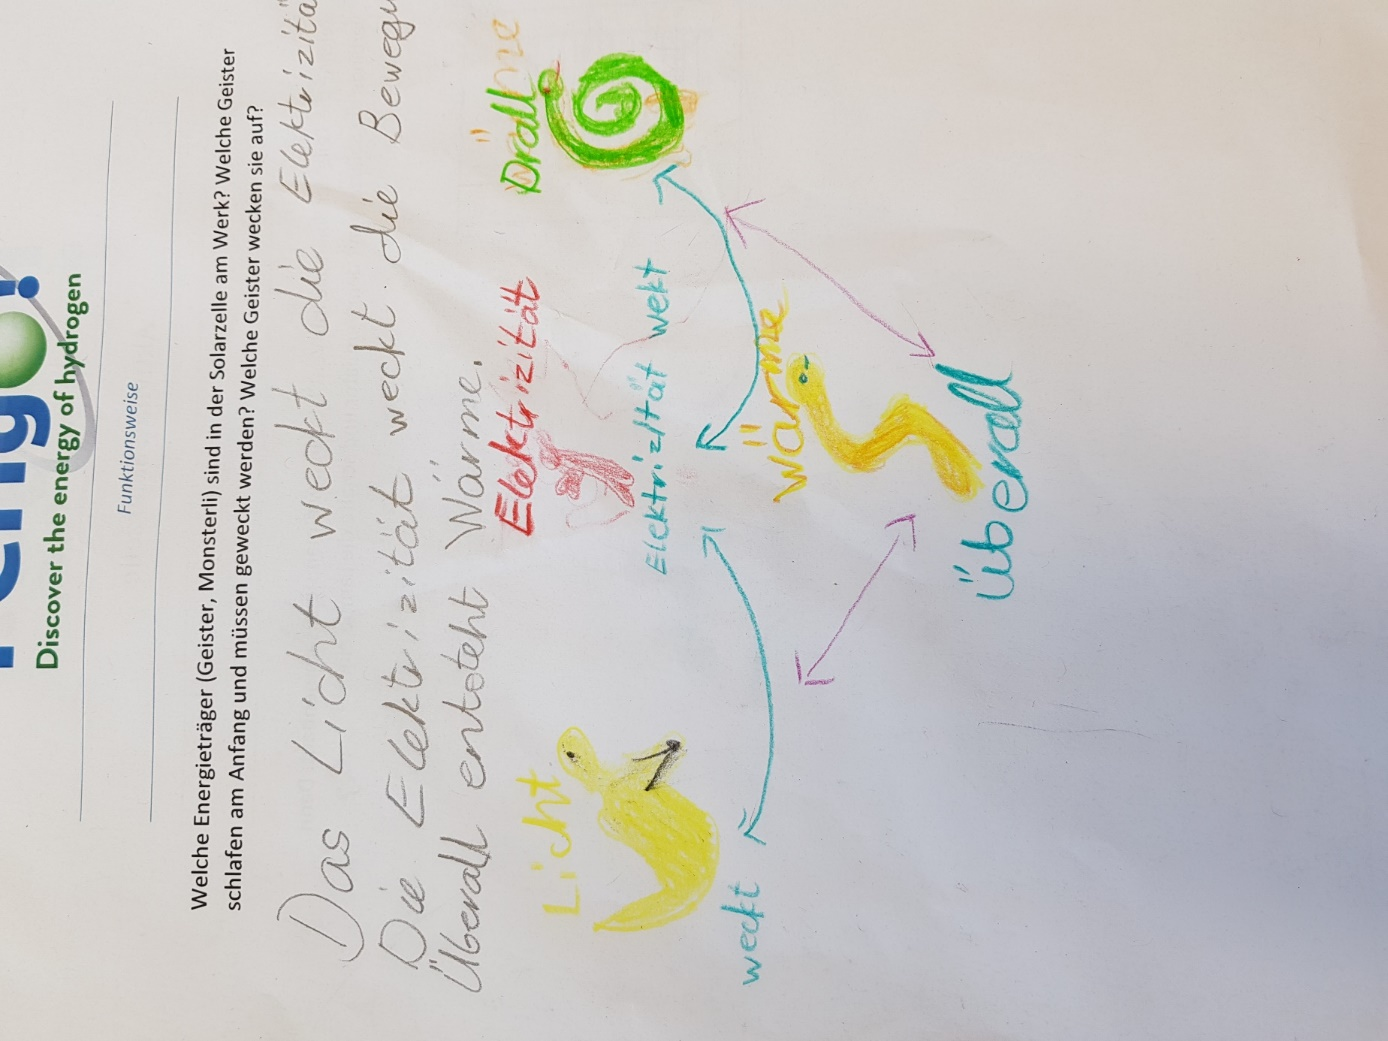 Discover the energy of hydrogen
Funktionsweise
Welche Energieträger (Geister, Monsterli) sind in der Solarzelle am Werk? Welche Geister
schlafen am Anfang und müssen geweckt werden? Welche Geister wecken sie auf?
Das Licht weckt die Elektrizitä
Die Elektrizität weckt die Bewegu
Überall entsteht Wärme.
Licht Elektrizität Drall
weckt Elektrizität wekt
Wärme
Überall